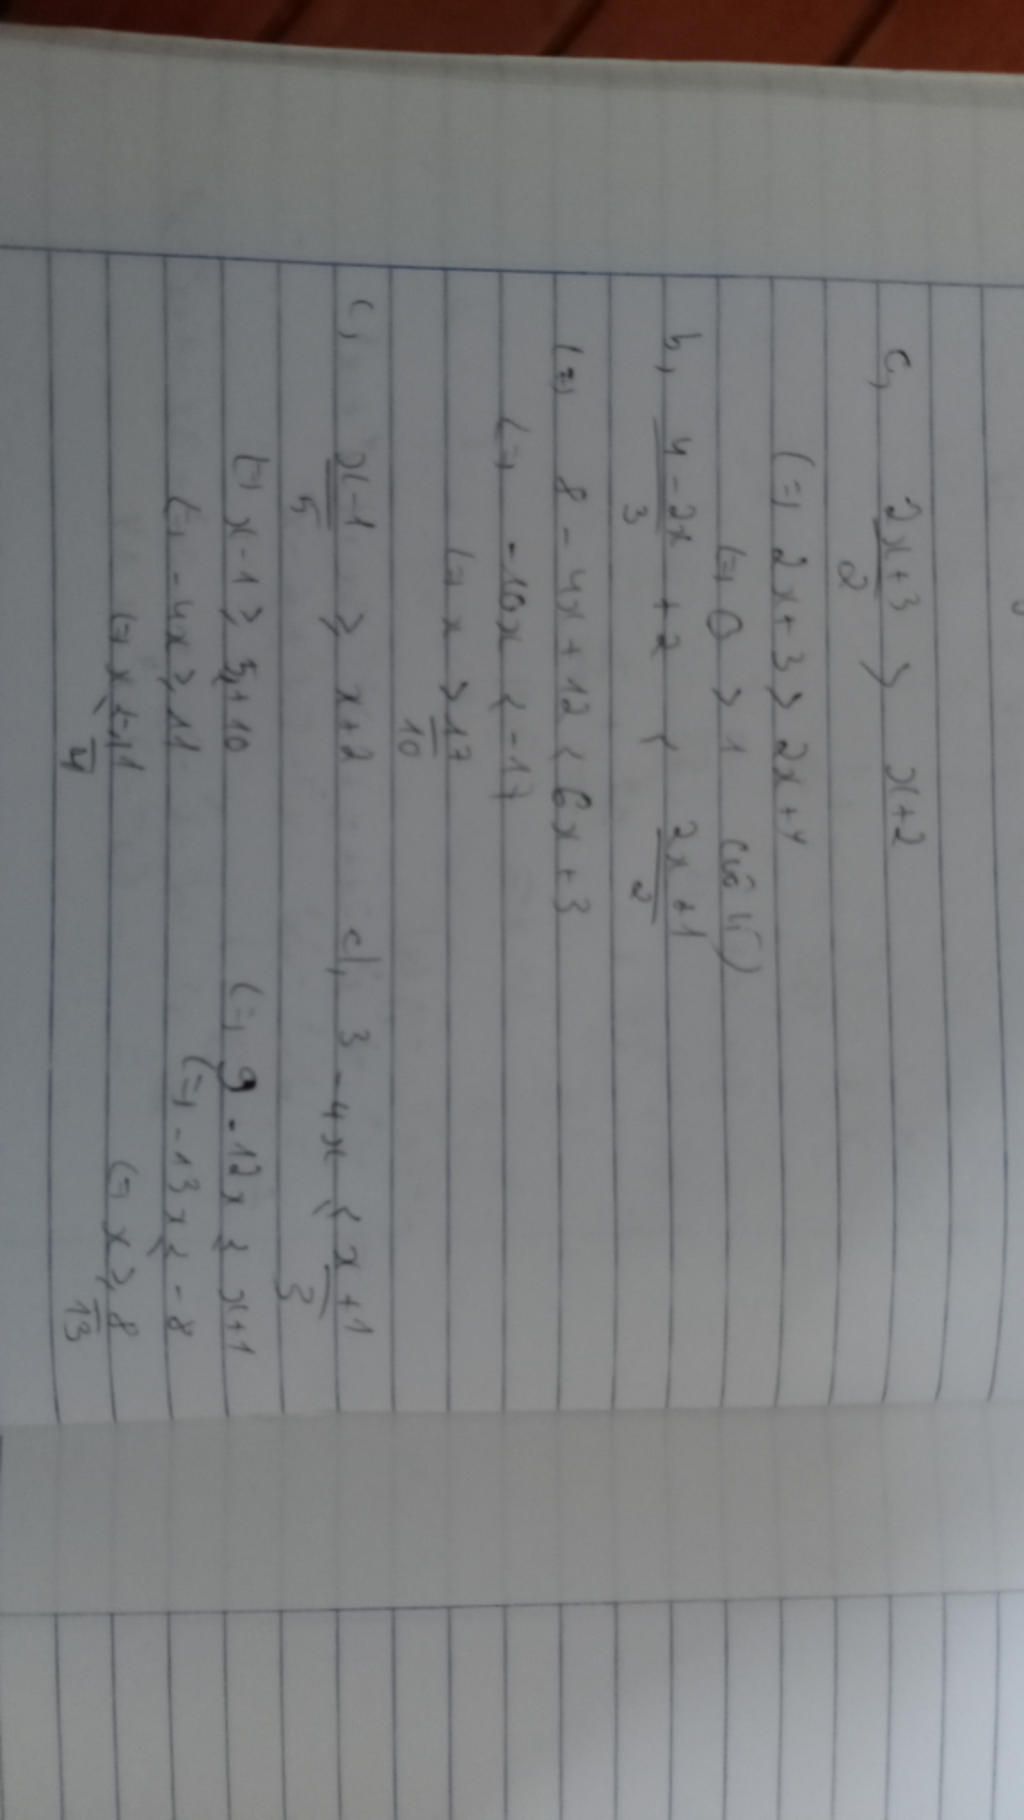 a, \frac{2x+3}{2} > x+2
(=, 2x+3 > 2x+4
(=, 0 > 1 (vô lí)
b, \frac{4-2x}{3} +2 < \frac{2x+1}{2}
(=, 8 - 4x + 12 < 6x + 3
(=, -10x < -17
(=, x > \frac{17}{10}
c, \frac{x-1}{5} ≥ x+2
(=, x-1 ≥ + 10
(=, -4x ≥ 11
(=, x ≤ \frac{-11}{4}
d, 3 - 4x ≤ \frac{x+1}{3}
(=, 9 - 12x ≤ x+1
(=, -13x ≤ -8
(=, x ≥ \frac{8}{13}